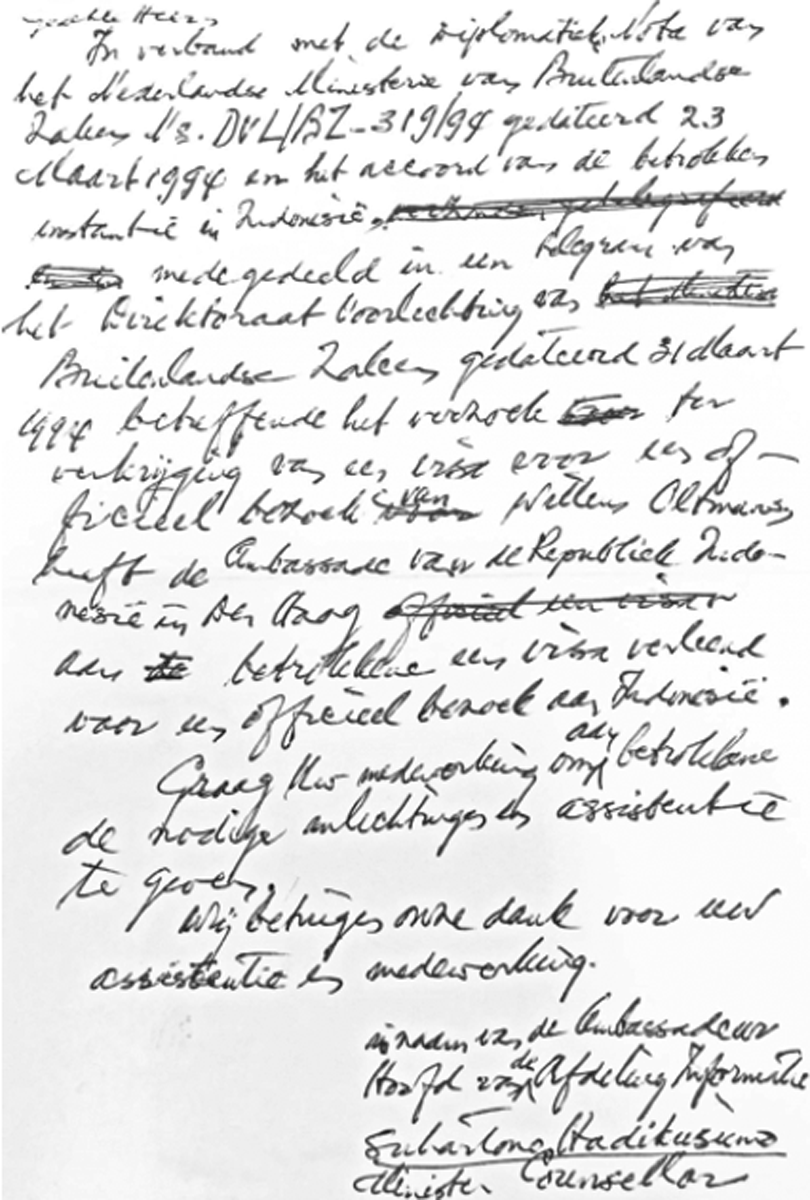 geachte Heer,
In verband met de Diplomatieke Nota van
het Nederlandse Ministerie van Buitenlandse
Zaken No. DVL/BZ-319/94 gedateerd 23
Maart 1994 en het accoord van de betrokken
instantie in Indonesië,
medegedeeld in een telegram van
het Direktoraat Voorlichting van
Buitenlandse Zaken gedateerd 31 Maart
1994 betreffende het verzoek ter
verkrijging van een visa voor een of-
ficieel bezoek van Willem Oltmans,
heeft de Ambassade van de Republiek Indo-
nesië in Den Haag
aan betrokkene een visa verleend
voor een officieel bezoek aan Indonesië.
Graag Uw medewerking om aan betrokkene
de nodige inlichtingen en assistentie
te geven.
Wij betuigen onze dank voor uw
assistentie en medewerking.
in naam van de Ambassadeur
Hoofd van de Afdeling Informatie
Suhartono Hadikusumo
Minister Counsellor